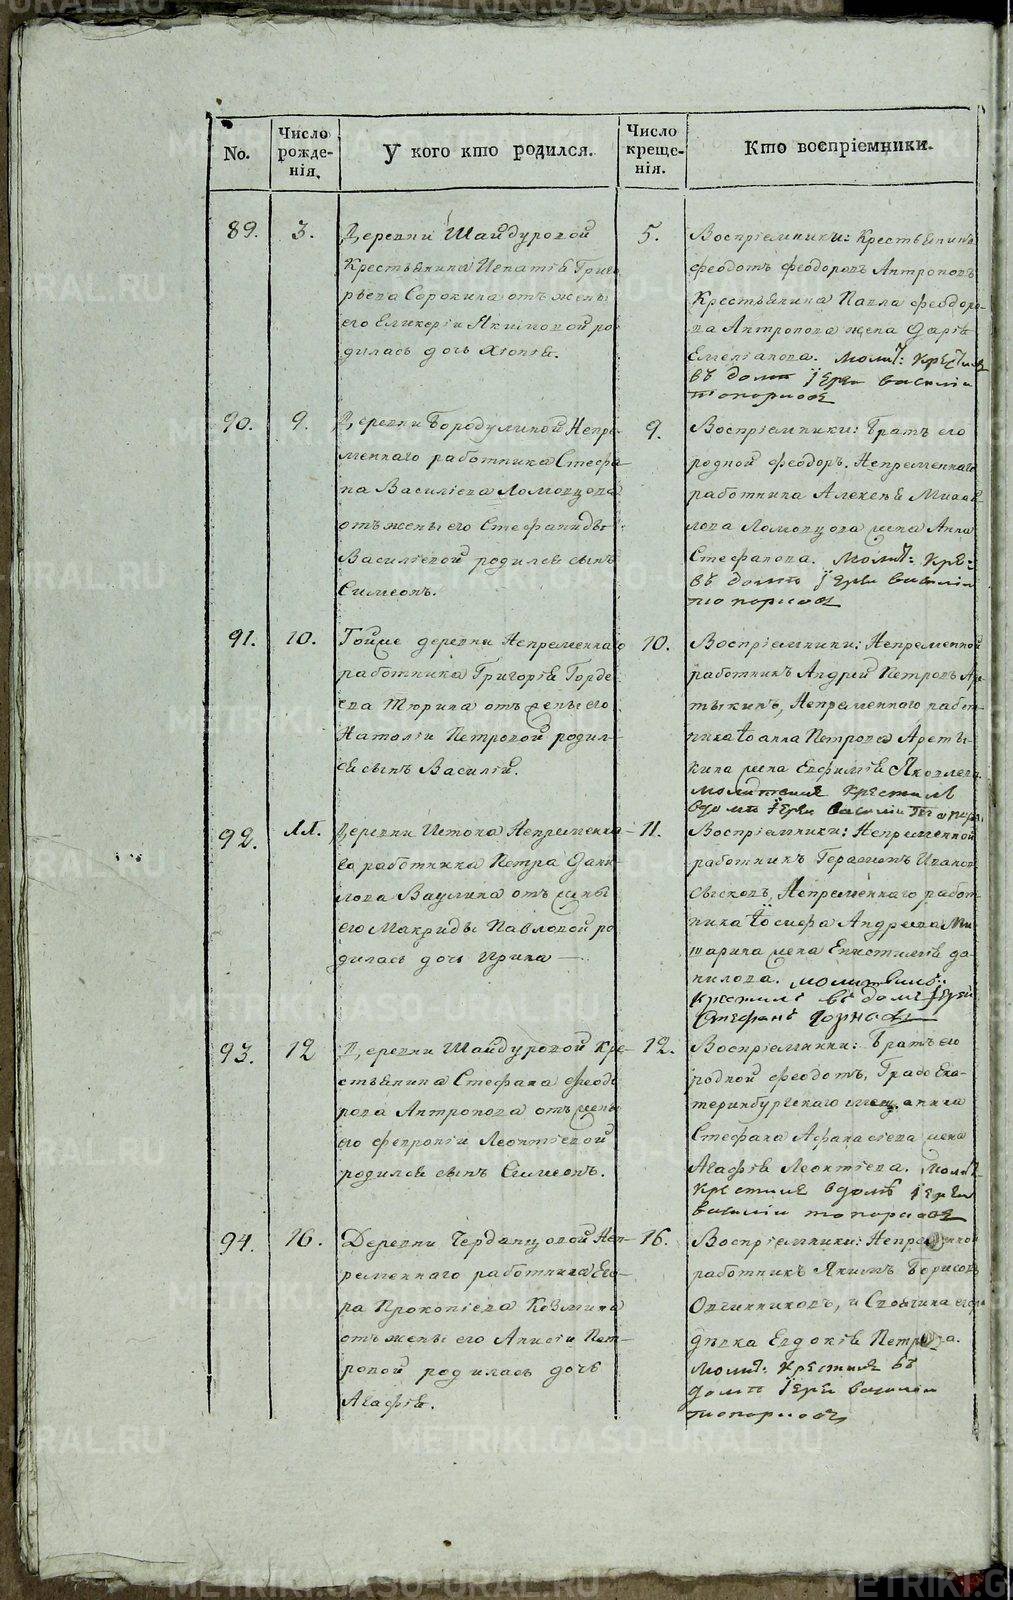 No.
Число рожде-
нія.
У кого кто родился.
Число креще-
нія.
Кто воспріемники.
89.
3.
Деревни Шайдуровой
Крестьянина Игнатія Григо
рьева Сорокина отъ жены
его Гликеріи Якимовой ро
дилась дочь Хіонія.
5.
Воспріемники: Крестьянинъ
Феодотъ Феодоровъ Антроповъ
Крестьянина Павла Феодоро-
ва Антропова жена Дарія
Емеліанова. Молит: крестилъ
въ доме Іерей Василіи
Топорковъ
90.
9.
Деревни Бородулиной Непре-
меннаго работника Стефа-
на Василіева Ломовцова
отъ жены его Стефаниды
Василіевой родился сынъ
Симеонъ.
9.
Воспріемники: Братъ его
родной Феодоръ, Непременнаго
работника Алексея Михай
лова Ломовцова жена Анна
Стефанова. Молит: кре-
въ доме Іереи Василіи
Топорковъ
91.
10.
Тойже деревни Непременнаго
работника Григорія Горде
ева Тюрина отъ жены его
Наталіи Петровой родил-
ся сынъ Василій.
10.
Воспріемники: Непременной
работникъ Андрей Петровъ Аре
тыкинъ, Непременнаго работ-
ника Іоанна ПетроваАреты-
кина жена Евфимія Яковлева.
крестилъ
Іереи Василіи Топорк
92.
11.
Деревни Истока Непременна-
го работника Петра Дани-
лова Ваулина отъ жены
его Макриды Павловой ро
дилась дочь Ирина —
11.
Воспріемники: Непременной
работникъ Герасимъ Иванов
Непременнаго работ
ника Іосифа Андреева Ми
шарина жена Епистимія Да-
нилова.
крестилъ въ доме Іереи
Стефанъ
93.
12
Деревни Шайдуровой Кре-
стьянина Стефана Феодо
рова Антропова отъ жены
его Февроніи Леонтіевой
родился сынъ Симеонъ.
12.
Воспріемники: Братъ его
родной Феодотъ, Градо Ека-
теринбургскаго мещанина
Стефана Афанасіева жена
Агафія Леонтіева. Молит
крестилъ в доме Іереи
Василіи Топорковъ
94.
16.
Деревни Чердынцовой Неп-
ременнаго работника Его-
ра Прокопіева Козмина
отъ жены его Анисіи Пет-
ровой родилась дочь
Агафія.
16.
Воспріемники: Непременной
работникъ Якимъ Борисовъ
Овчинниковъ, и Своячина его
девка Евдокія Петрова.
Молит: крестилъ въ
доме Іереи Василіи
Топорковъ
METRIKI.GASO-URAL.RU